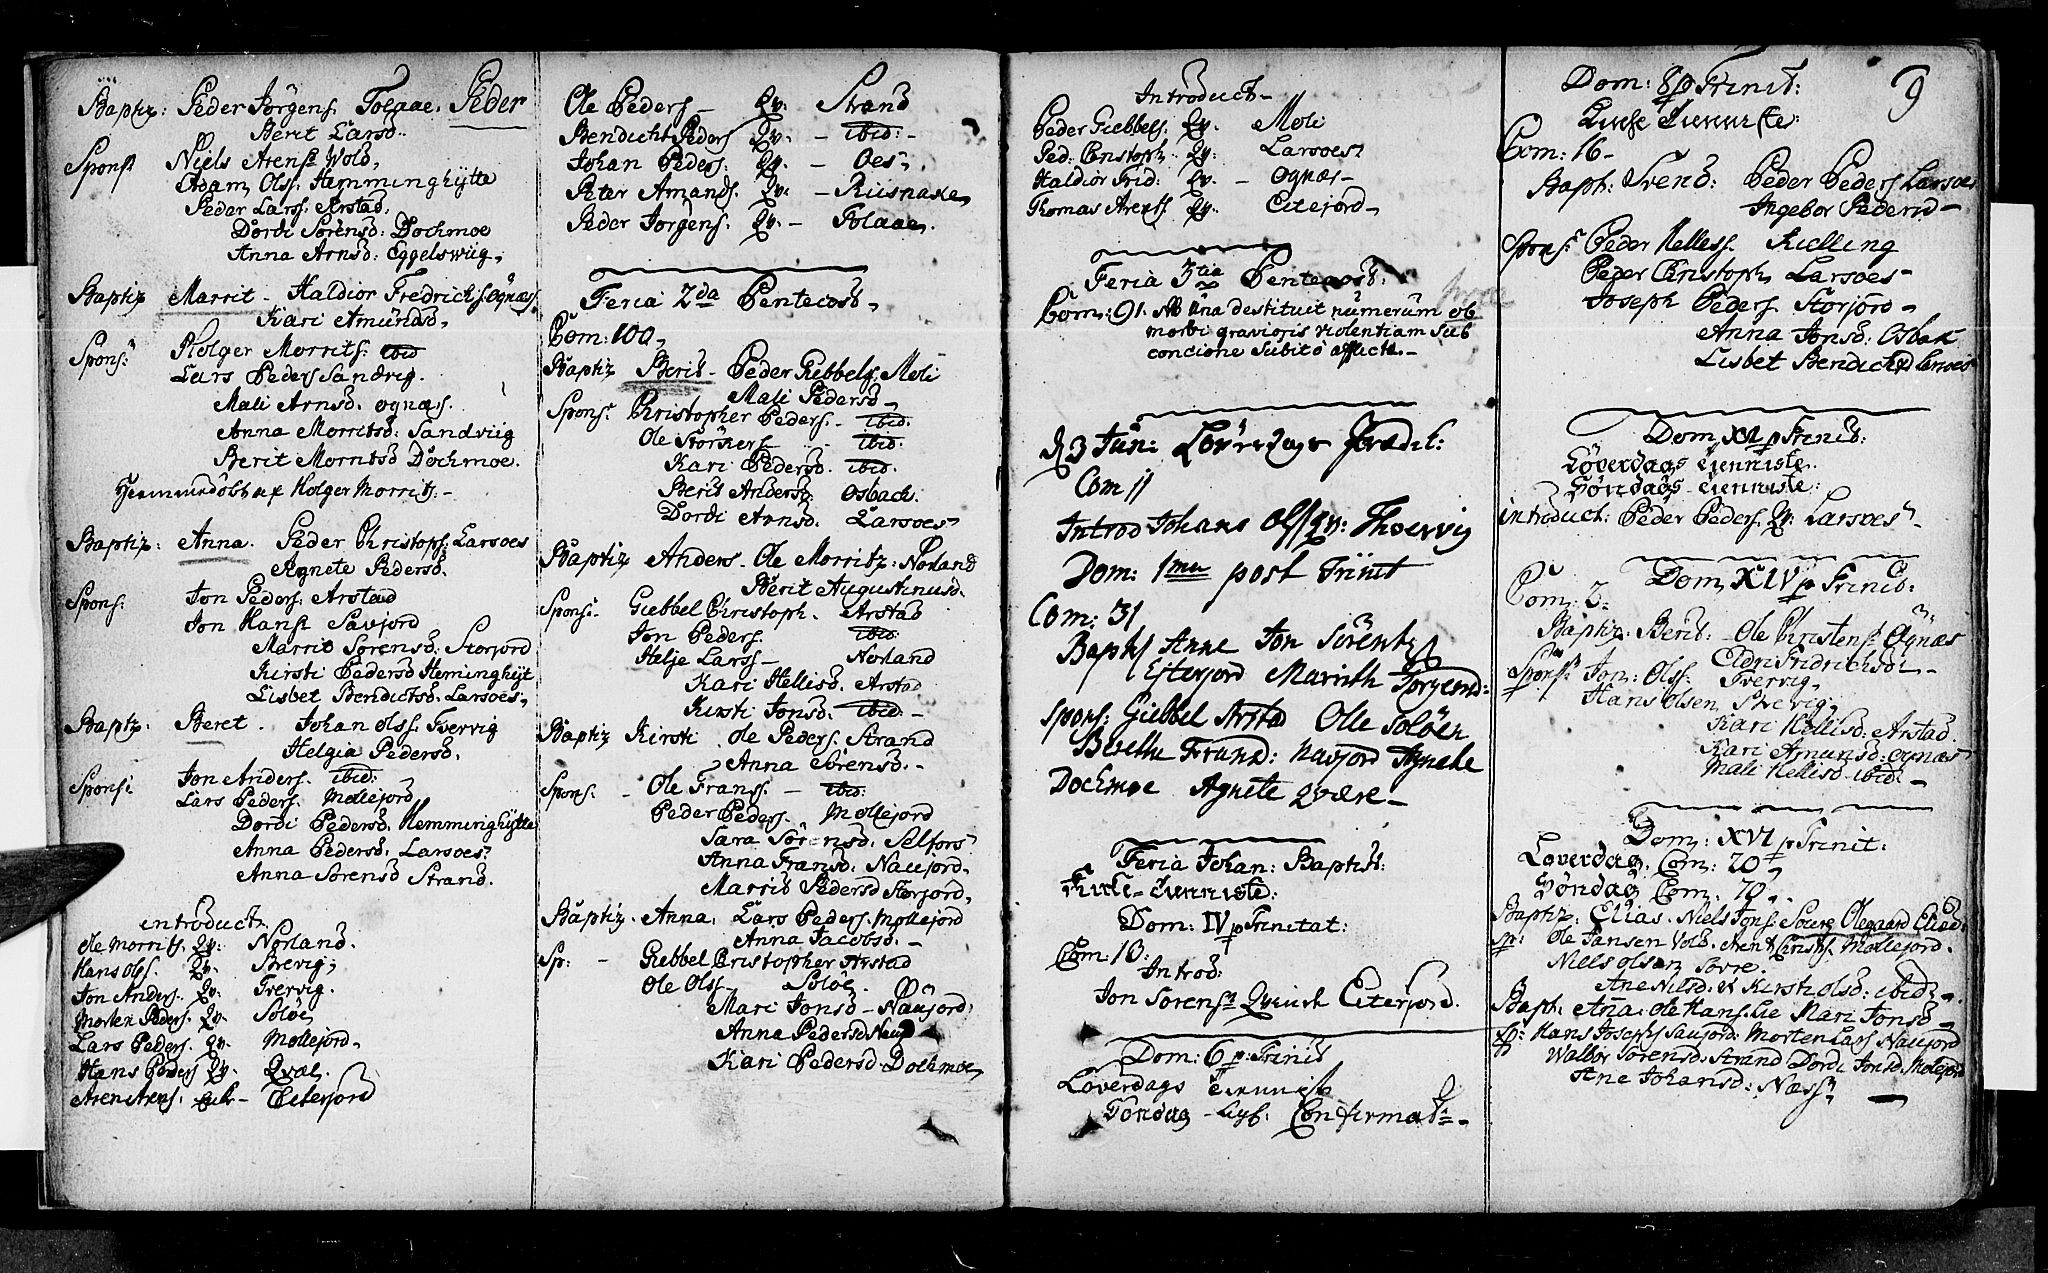 Baptiz: Peder Jörgens. Tolaae. Peder
Berit Larsd.
Spons: Niels Arens: Wold,
Adam Ols: Hemminghytte
Peder Lars: Arstad:
Dordi Sörensd: Dochmoe
Anna Arnsd: Eggelswiig,
Baptiz Marrit - Haldior Fredrichs. Ognæs.
Kari Amundsd,
Spons: Holger Morrits: ibid
Lars Peders Sandvig.
Mali Arnsd. ognæs.
Anna Morritsd: Sandviig
Berit Morritsd Dochmoe.
Hiemmedöbt af Holger Morrits -
Baptiz: Anna. Peder Christoph: Larsoes
Agnete Pedersd.
Spons: Jon Peders: Arstad
Jon Hans: Savjord
Marrit Sörensd: Storjord
Kirsti Pedersd Heminghyt
Lisbet Bendictsd. Larsoes,
Baptz: Beret. Johan Olss. Tvervig
Helgia Pedersd.
Spons: Jon Anders. ibid:
Lars Peders. Mollejord
Dordi Pedersd. Hemminghytte
Anna Pedersd. Larsoes
Anna Sörensd Strand.
introduct
Ole Morrits. Qv: Norland.
Hans Ols. Qv. Brevig,
Jon Anders. Qv. Tvervig.
Morten Peders. Qv. Solöe
Lars Peders. Qv. Mollejord,
Hans Peders Qv. Qvæl.
Aren Arens. Eiterjord
Ole Peders - Qv: Strand
Bendicht Peders Qv. - ibid: -
Johan Peders. Qv. - Oes,
Peter Amands. Qv. - Riisnaxe,
Peder Jörgens. Qv. - Tolaae,
Feria 2da Pentecost,
Com: 100,
Baptiz Berit - Peder Giebbels. Moli
Mali Pedersd,
Spons: Christopher Peders. - ibid:
Ole Störkers - ibid:
Kari Pedersd. ibid.
Berit Andersd: Osbach.
Dordi Arnsd. Larsoes
Baptiz Anders - Ole Morritz: Norland
Berit Augustinusd.
Spons: Giebbel Christoph. Arstad
Jon Peders. ibid
Helje Larss - Norland
Kari Hellisd. Arstad
Kirsti Jonsd. ibid: -
Baptiz Kirsti. Ole Peders. Strand
Anna Sörensd. -
Spons: - Ole Franss. - ibid:
Peder Peders. Mollejord
Sara Sörensd. Selfors
Anna Fransd. Naujord,
Marrit Pedersd Storjord,
Baptiz. Anna. Lars Peders. Mollejord
Anna Jacobsd. -
Sp: - Giebbel Christopher Arstad
Ole Olss. Solöe.
Mari Jonsd - Naujord:
Anna Pedersd Nauj
Kari Pedersd. Dochmoe,
Introduct -
Peder Giebbels. Qv. Moli
Ped: Christoph Qv: Larsoes
Haldior Frid: Qv. - Ognæs -
Thomas Arens. Qv. Eitejord,
Feria 3tia Pentecost:
Com: 91. NB una destituit numerum ob
morbi gravioris violentiam sub
concione subitò affecta. -
d 3 Jun: Löverdags Prædik:
Com 11
Introd Johans Ols Qv: Thvervig
Dom: 1ma post Trinit
Com: 31
Bapt: Anne Jon Sörens
Eiterjord Marith Joryend:
spons: Giebbel Arstad Olle Solöen
Berethe Frand: Navjord Agnethe
Dochmoe Agnete Qvære -
Feria Johan: Baptist:
Kirke-tienniste:
Dom: IV p Trinitat:
Com: 10:
Introd:
Jon Sörens Qvinde Eiterjord.
Dom: 6 p: Trinit
Löverdags tienniste
Söndag - Confirmat: -
9
Dom: 8 p Trinit:
Kirke tienniste:
Com: 16 -
Bapt: Svend: Peder Peders Larsoes
Ingebor Pedersd -
Spons: Peder Helless. Kielling
Peder Christoph, Larsoes -
Joseph Peders. Storjord -
Anna Jonsd: Osbak
Lisbet Bendichsd Larsoes
Dom, XI p Trinit:
Löverdags tienniste.
Söndags - tienniste:
introduct: Peder Peders. Qv. Larsoes.
Dom, XIV p Trinit:
Com, 3.
Baptiz: Berit: - Ole Christens: Ognæs
Eldri Fridrichsd -
Spons: Jon: Olss. Tvervig,
Hans Olsen Brevig,
Kari Hellisd: Arstad.
Kari Amunsd: ognæs
Mali Hellisd - ibid: -
Dom: XVI p Trinit:
Löverdag. Com: 20
Söndag Com: 70,
Baptiz: Elias. Niels Jons. Sovre Olegaard Eliæd:
sp: Ole Jansen Vold. Arent Christ. Mollejord.
Niels olsen Sovre.
Ane Nilsd: & Kirsti olsd: ibid: -
Bapt: Aña: Ole Hans. Lie Mari Jonsd -
sp: Hans Josephs Saujord: Morten Lars Naujord
Walbor Sörensd: Strand Dordi Jonsd Molejord
Ane Johansd: Næss